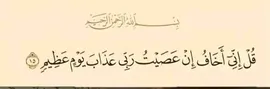 بِسْمِ اللَّهِ الرَّحْمَٰنِ الرَّحِيمِ
قُلْ إِنِّي أَخَافُ إِنْ عَصَيْتُ رَبِّي عَذَابَ يَوْمٍ عَظِيمٍ ﴿١٥﴾